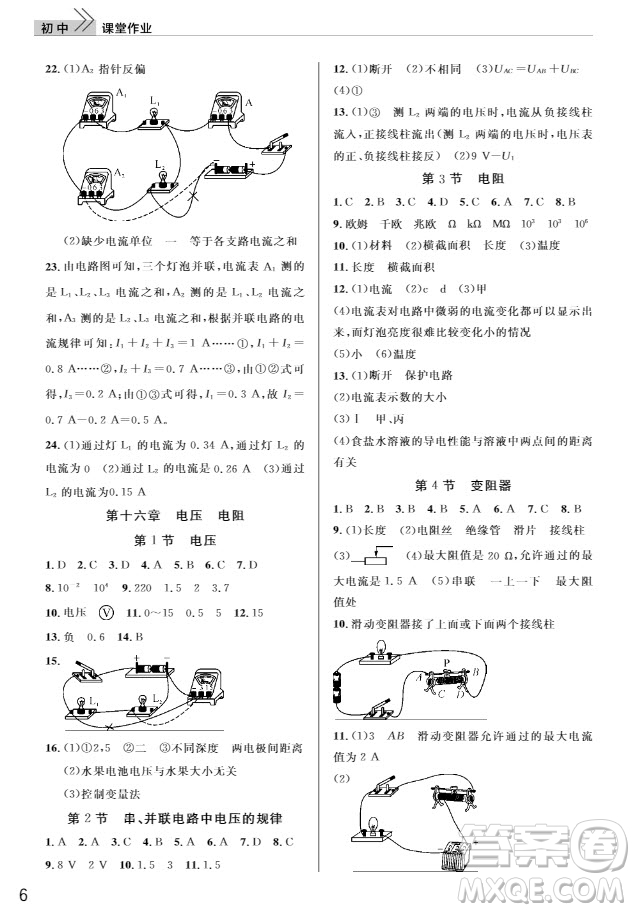 初中 课堂作业
22. (1)A₂ 指针反偏
A₁ L₁ A
A₂ L₂
(2)缺少电流单位 一 等于各支路电流之和
23. 由电路图可知,三个灯泡并联,电流表 A₁ 测的
是 L₁、L₂、L₃ 电流之和,A₂ 测的是 L₂、L₃ 电流之
和,A₃ 测的是 L₃ 的电流,根据并联电路中的电
流规律可知:I₁+I₂+I₃=1 A……①,I₂+I₃=
0.8 A……②,I₃=0.2 A;由①②可得,I₂+I₃=
0.7 A……③,由①③可得,I₁=0.2 A,故 I₂=
0.7 A-0.2 A=0.5 A。
24. (1)通过灯 L₁ 的电流为 0.34 A,通过灯 L₂ 的
电流为 0 (2)通过 L₂ 的电流是 0.26 A (3)灯
L₂ 的电流为0.15 A
第十六章 电压 电阻
第 1 节 电压
1. D 2. C 3. D 4. B 5. C 6. D 7. D
8. 10⁻² 10⁸ 9. 220 1.5 2 3.7
10. 电压 Ⓥ 11. 0～15 0.5 5 12. 15
13. 负 0.6 14. B
15.
- +
L₁ L₂
16. (1)①2,5 ②二 ③不同深度 两电极间距离
(2)水果电池电压与水果大小无关
(3)控制变量法
第 2 节 串、并联电路中电压的规律
1. A 2. A 3. B 4. D 5. D 6. A 7. D 8. C
9. 8 V 2 V 10. 1.5 3 11. 1.5
12. (1)断开 (2)不相同 (3)U_AC=U_AB+U_BC
(4)①
13. (1)③ 测 L₂ 两端的电压时,电流从负接线柱
流入,正接线柱流出(测 L₂ 两端的电压时,电压
表的正、负接线柱接反) (2)9 V-U₁
第 3 节 电阻
1. C 2. B 3. C 4. D 5. C 6. C 7. B 8. C
9. 欧姆 千欧 兆欧 Ω kΩ MΩ 10³ 10³ 10⁶
10. (1)材料 (2)横截面积 长度 (3)温度
11. 长度 横截面积
12. (1)电流 (2)c d (3)甲
(4)电流表对电路中微弱的电流变化都可显示出来,
而灯泡亮度很难分辨变化较小的情况
(5)小 (6)温度
13. (1)断开 保护电路
(2)电流表示数的大小
(3)l 甲、丙
(4)食盐水溶液的导电性能与溶液中两点间的距离
有关
第 4 节 变阻器
1. B 2. B 3. D 4. C 5. C 6. A 7. C 8. C
9. (1)长度 (2)电阻丝 绝缘管 滑片 接线柱
(3) (4)最大阻值是 20 Ω,允许通过的最
大电流是 1.5 A (5)串联 一上一下 最大阻
值处
10. 滑动变阻器接了上面或下面的两个接线柱
P
A B
C D
11. (1)3 AB 滑动变阻器允许通过的最大电流
值为 2 A
(2)
答案圈
MXQE.COM
6